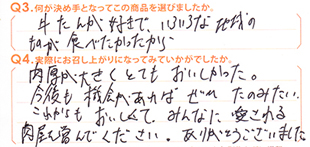 Q3.何が決め手となってこの商品を選びましたか。
牛たんが好きで、いろいろな地域の
ものが食べたかったから
Q4.実際にお召し上がりになってみていかがでしたか。
肉厚が大きくとてもおいしかった。
今後も機会があればぜひたのみたい。
これからもおいしくて、みんなに愛される
肉屋を営んでください。ありがとうございました